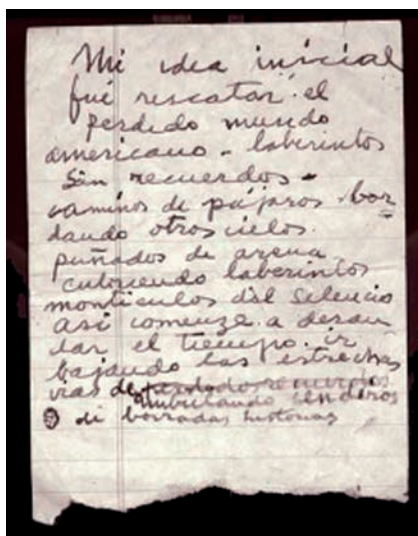 Mi idea inicial
fué rescatar el
perdido mundo
americano - laberintos
sin recuerdos -
caminos de pájaros bor-
dando otros cielos.
puñados de arena
cubriendo laberintos
montículos del silencio
asi comenze a desan
dar el tiempo. ir
bajando las estrechas
vias de
ambulando senderos
di borradas historias